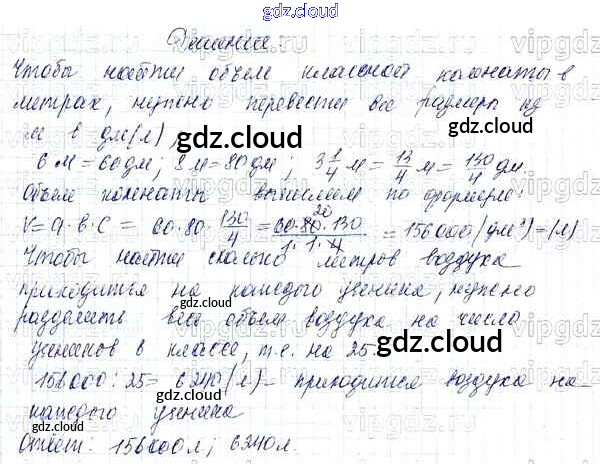 gdz.cloud
Решение:
Чтобы найти объем классной комнаты в
метрах, нужно перевести все размеры из
м в дм(л)
6 м = 60 дм; 8 м = 80 дм; 3 1/4 м = 13/4 м = 130/4 дм.
Объем комнаты вычисляем по формуле:
V = a · b · c = 60 · 80 · 130/4 = 60·80·130/1·1·4 20 = 156000 (дм³) = (л)
Чтобы найти сколько литров воздуха
приходится на каждого ученика, нужно
разделить весь объем воздуха на число
учеников в классе, т.е. на 25.
156000 : 25 = 6240 (л) – приходится воздуха на
каждого ученика
Ответ: 156000 л; 6240 л.
gdz.cloud
gdz.cloud
gdz.cloud
gdz.cloud
gdz.cloud
gdz.cloud
gdz.cloud